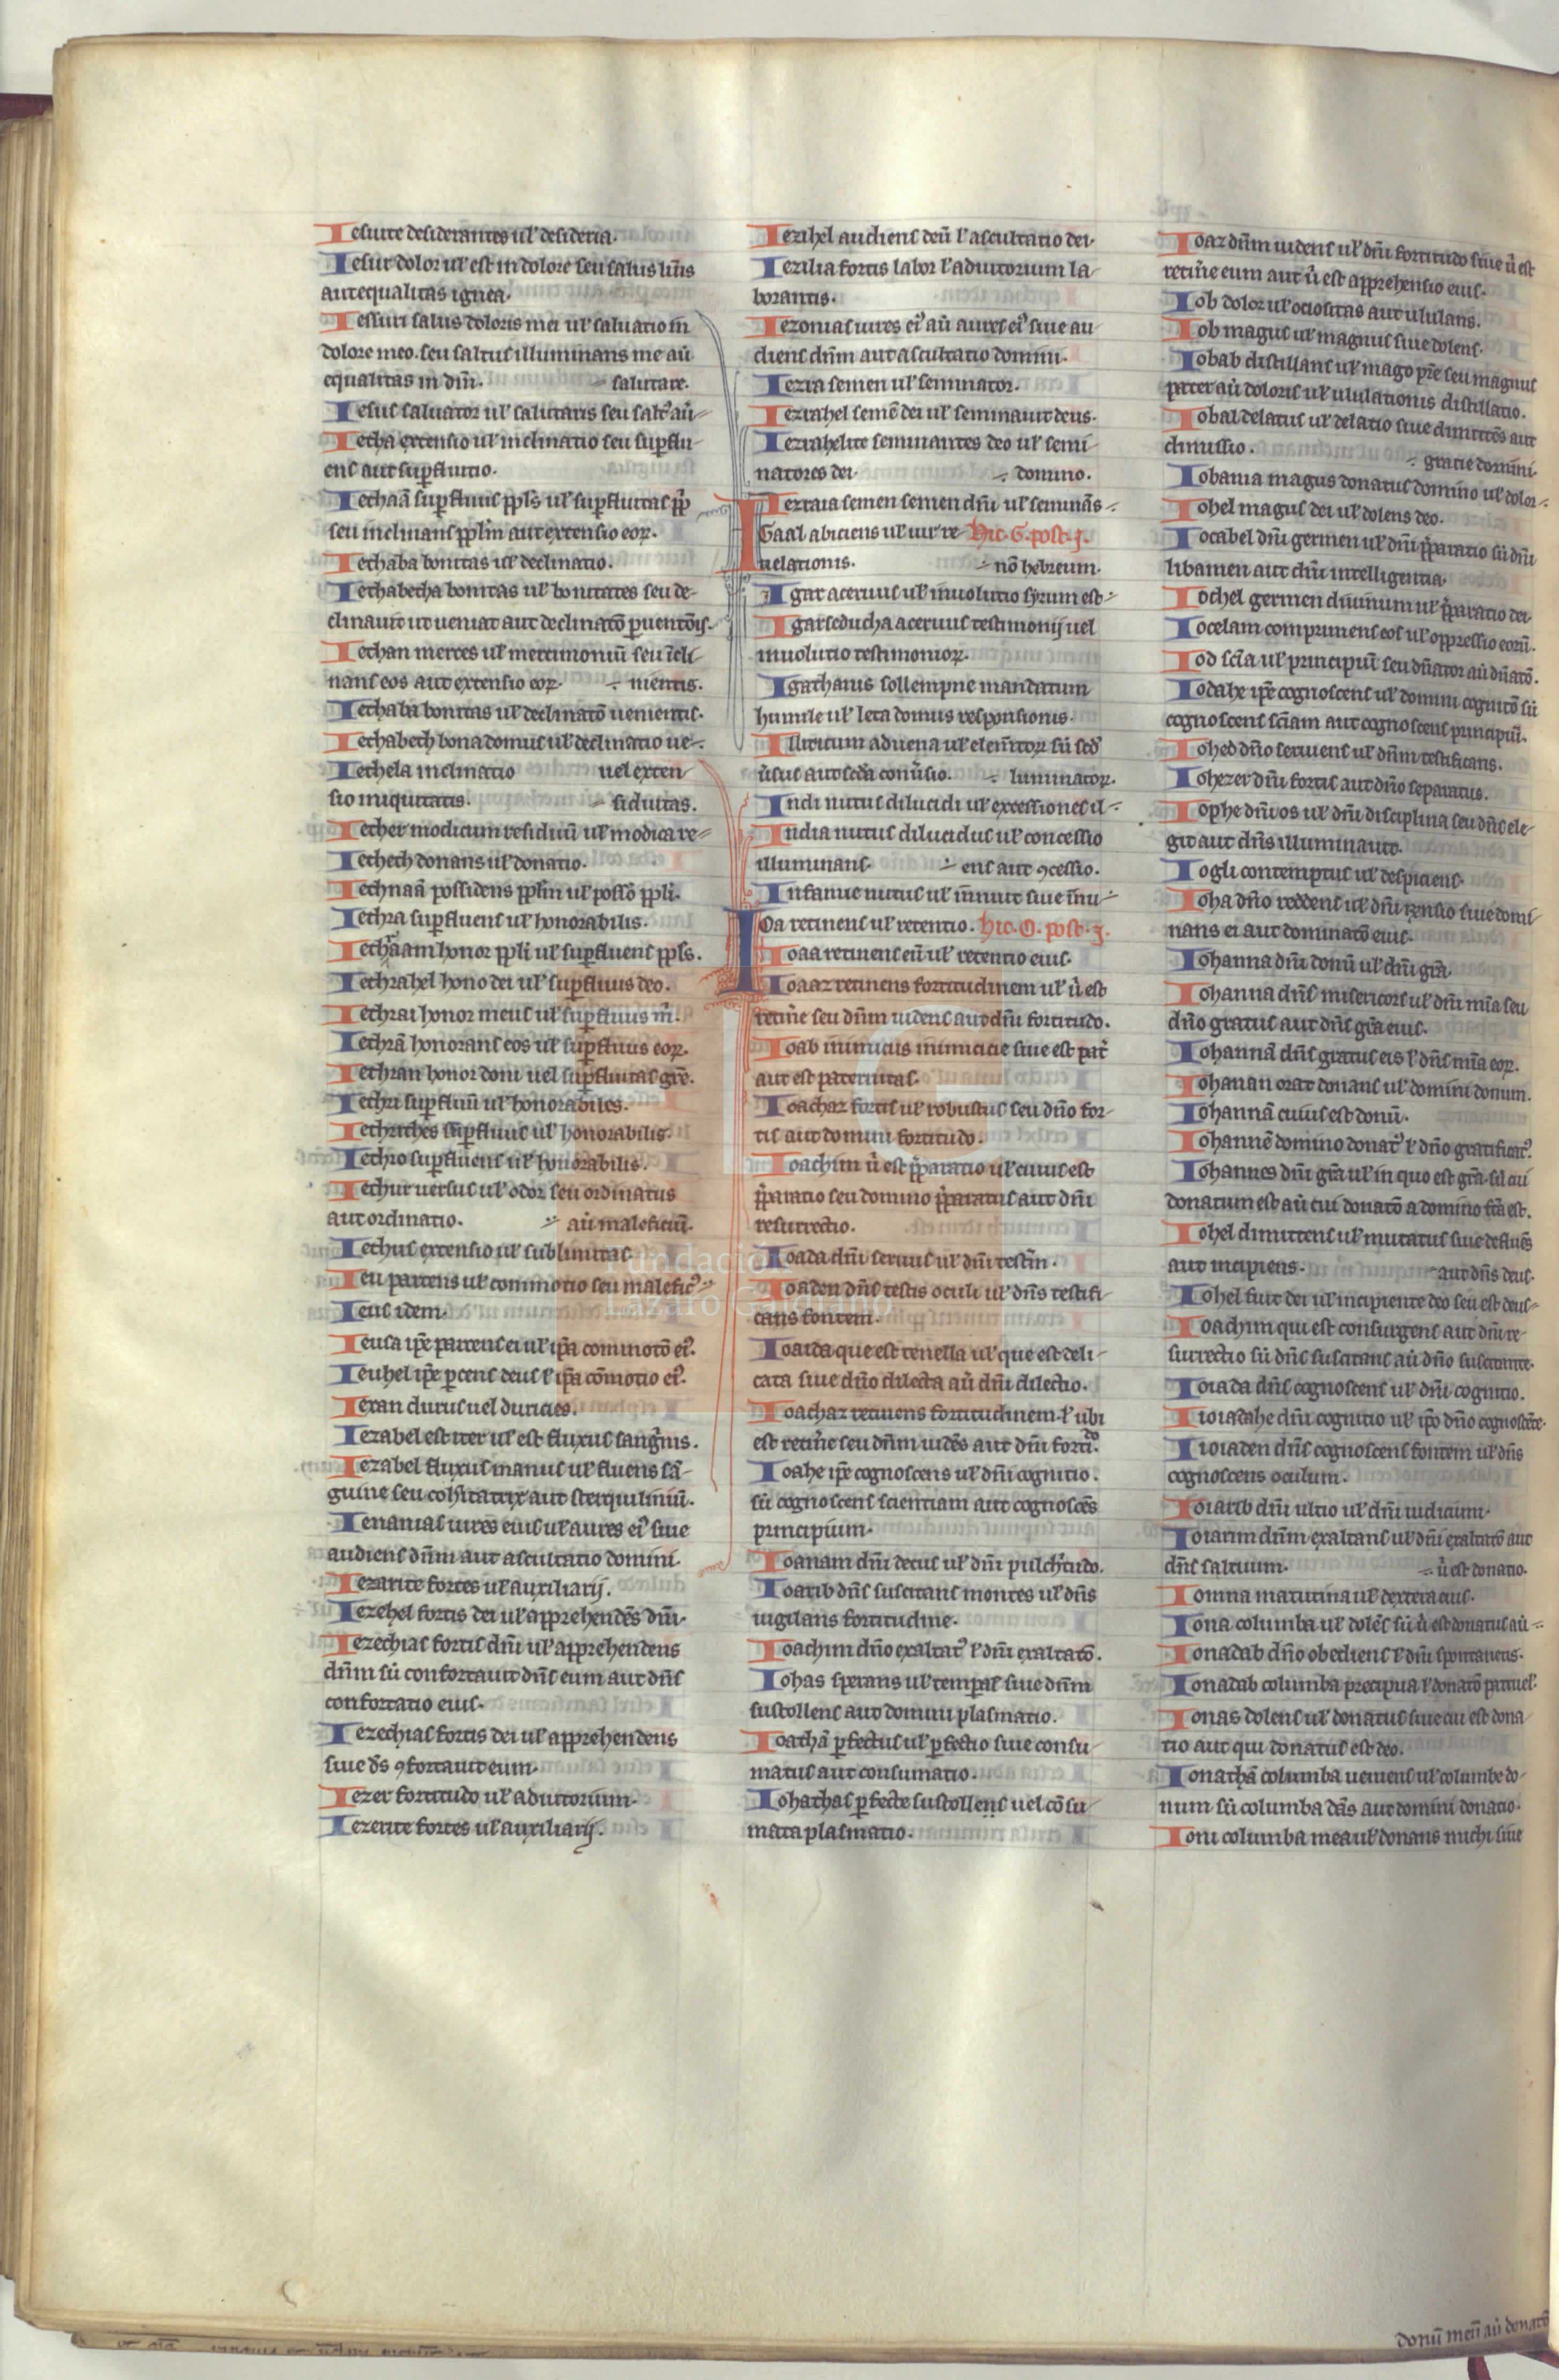 Iesuite desiderantes ul' desideria.
Iesui dolor ul' est in dolore seu salus lin̄s
aut equalitas ignea.
Iessuri salus doloris mei ul' saluatio in
dolore meo. seu saltus illuminans me aū
equalitas in dn̄i. salutare.
Iesus saluator ul' salutaris seu salt' aū
Ietha extensio ul' inclinatio seu sup̄flu-
ens aut sup̄fluitio.
Iethaā sup̄fluus pp̄ls ul' sup̄fluitas pp̄
seu inclinans pp̄lm aut extensio eoꝝ.
Iethaba bonitas ul' declinatio.
Iethabetha bonitas ul' bonitates seu de-
clinauit ut ueniat aut declinatō ꝑuentōis.
Iethan merces ul' mercimoniū seu īcli-
nans eos aut extensio eoꝝ. mentis.
Iethaba bonitas ul' declinatō uenientis.
Iethabech bona domus ul' declinatio ue-
Iethela inclinatio uel exten
sio iniquitatis. siduitas.
Iether modicum residuū ul' modica re-
Iethech donans ul' donatio.
Iethnaā possidens pp̄lm ul' possō pp̄li.
Iethra sup̄fluens ul' honorabilis.
Iethraam honor pp̄li ul' sup̄fluens pp̄ls.
Iethrahel hono dei ul' sup̄fluus deo.
Iethrai honor meus ul' sup̄fluus m̄.
Iethrā honorans eos ul' sup̄fluus eoꝝ.
Iethran honor doni uel sup̄fluitas grē.
Iethri sup̄fluū ul' honorabiles.
Iethrithes sup̄fluus ul' honorabilis.
Iethro sup̄fluens ul' honorabilis.
Iethur uersus ul' odor seu ordinatus
aut ordinatio. aū maleficiū.
Iethus extensio ul' sublimitas.
Ieu parcens ul' commotio seu malefic'
Ieus idem.
Ieusa ip̄e parcens ei ul' ip̄a commotō ei'.
Ieuhel ip̄e ꝑcens deus l' ip̄a cōmotio ei'.
Iexan durus uel duricies.
Iezabel est iter ul' est fluxus sangīnis.
Iezabel fluxus manus ul' fluens sā-
guine seu cohitatrix aut sterquiliniū.
Iezanias uires eius ul' aures ei' siue
audiens dn̄m aut ascultatio domini.
Iezarite fortes ul' auxiliarij.
Iezehel fortis dei ul' apprehendēs dn̄i.
Iezechias fortis dn̄i ul' apprehendens
dn̄m sū confortauit dn̄s eum aut dn̄s
confortatio eius.
Iezechias fortis dei ul' apprehendens
siue ds̄ ꝯfortauit eum.
Iezer fortitudo ul' adiutorium.
Iezerite fortes ul' auxiliarij.
Iezihel audiens deū l' ascultatio dei.
Iezilia fortis labor l' adiutorium la-
borantis.
Iezonias uires ei' aū aures ei' siue au
diens dn̄m aut ascultatio domini.
Iezra semen ul' seminator.
Iezrahel semē dei ul' seminauit deus.
Iezrahelite seminantes deo ul' semi-
natores dei. domino.
Iezraia semen semen dn̄i ul' seminās
IGaal abiciens ul' uir re Hic. G. post. j.
uelationis. nō hebreum.
Igar aceruus ul' inuolutio syrum est
Igarseducha aceruus testimonij uel
inuolutio testimonioꝝ.
Igatharus sollempne mandatum
humile ul' leta domus responsionis.
Illiricum aduena ul' elem̄toꝝ sū scd'
ūsus aut scda conūsio. luminatoꝝ.
Indi nutus dilucidi ul' excessiones il-
India nutus dilucidus ul' concessio
illuminans. ens aut ꝯcessio.
Infanue nutus ul' īnnuit siue īnu
IOa retinens ul' retentio. Hic. O. post. j.
Ioaa retinens eū ul' retentio eius.
Ioaaz retinens fortitudinem ul' ū est
retin̄e seu dn̄m uidens aut dn̄i fortitudo.
Ioab inimicus inimicicie siue est pat'
aut est paternitas.
Ioachaz fortis ul' robustus seu dn̄o for-
tis aut domini fortitudo.
Ioachim ū est p̄paratio ul' cuius est
p̄paratio seu domino p̄paratus aut dn̄i
resurrectio.
Ioada dn̄i seruus ul' dn̄i testīm.
Ioaden dn̄s testis oculi ul' dn̄s testifi-
cans fontem.
Ioaida que est tenella ul' que est deli-
cata siue dn̄o dilecta aū dn̄i dilectio.
Ioachaz retinens fortitudinem. l' ubi
est retin̄e seu dn̄m uidēs aut dn̄i forti.do
Ioahe ip̄e cognoscens ul' dn̄i cognitio.
sū cognoscens scientiam aut cognoscēs
principium.
Ioanam dn̄i decus ul' dn̄i pulchritudo.
Ioarib dn̄s suscitans montes ul' dn̄s
uigilans fortitudine.
Ioachim dn̄o exaltat' l' dn̄i exaltatō.
Iohas sperans ul' temp̄als siue dn̄m
sustollens aut domini plasmatio.
Ioathā ꝑfectus ul' ꝑfectio siue consu
matus aut consumatio.
Iohathas ꝑfecte sustollens uel cōsu
mata plasmatio.
Ioaz dn̄m uidens ul' dn̄i fortitudo siue ū est
retin̄e eum aut ū est apprehensio eius.
Iob dolor ul' ociositas aut ululans.
Iob magus ul' magnus siue dolens.
Iobab distillans ul' mago pr̄e seu magnus
pater aū doloris ul' ululationis distillatio.
Iobal delatus ul' delatio siue dimittēs aut
dimissio. gratie domini.
Iobania magus donatus domino ul' dolor
Iohel magus dei ul' dolens deo.
Iocabel dn̄i germen ul' dn̄i p̄paratio sū dn̄i
libamen aut dn̄i intelligentia.
Iochel germen diuinum ul' p̄paratio dei.
Iocelam comprimens eos ul' oppressio eorū.
Iod scīa ul' principiū seu dn̄ator aū dn̄atō.
Iodahe ip̄e cognoscens ul' domini cognitō sū
cognoscens scīam aut cognoscens principiū.
Iohed dn̄o seruiens ul' dn̄m testificans.
Iohezer dn̄i fortis aut dn̄o separatus.
Iophe dn̄i os ul' dn̄i disciplina seu dn̄s ele-
git aut dn̄s illuminauit.
Iogli contemptus ul' despiciens.
Ioha dn̄o reddens ul' dn̄i censio siue domi
nans ei aut dominatō eius.
Iohanna dn̄i donū ul' dn̄i gr̄a.
Iohanna dn̄s misericors ul' dn̄i mīa seu
dn̄o gratus aut dn̄s gr̄a eius.
Iohannā dn̄s gratus eis l' dn̄s mīa eoꝝ.
Iohanan orat donans ul' domini donum.
Iohannā cuius est donū.
Iohannē domino donat' l' dn̄o gratificat'.
Iohannes dn̄i gr̄a ul' in quo est gr̄a. sū cui
donatum est aū cui donatō a domino fc̄a est.
Iohel dimittens ul' mutatus siue defluēs
aut incipiens. aut dn̄s deus.
Iohel fuit dei ul' incipiente deo seu est deus
Ioachim qui est consurgens aut dn̄i re-
surrectio sū dn̄s suscitans aū dn̄o suscitante.
Ioiada dn̄s cognoscens ul' dn̄i cognitio.
Iioiadahe dn̄i cognitio ul' ip̄o dn̄o cognoscēte.
Iioiaden dn̄s cognoscens fontem ul' dn̄s
cognoscens oculum.
Ioiarib dn̄i ultio ul' dn̄i iudicium.
Ioiarim dn̄m exaltans ul' dn̄i exaltatō aut
dn̄s saltuum. ū est donatio.
Iomna matutina ul' dextera eius.
Iona columba ul' dolēs sū ū est donatus aū
Ionadab dn̄o obediens l' dn̄i spontaneus.
Ionadab columba precipua l' donatō patruel'.
Ionas dolens ul' donatus siue cui est dona
tio aut qui donatus est deo.
Ionathā columba ueniens ul' columbe do-
num sū columba dās aut domini donatio.
Ioni columba mea ul' donans michi siue
donū meū aū donatō
Fundación
Lázaro Galdiano